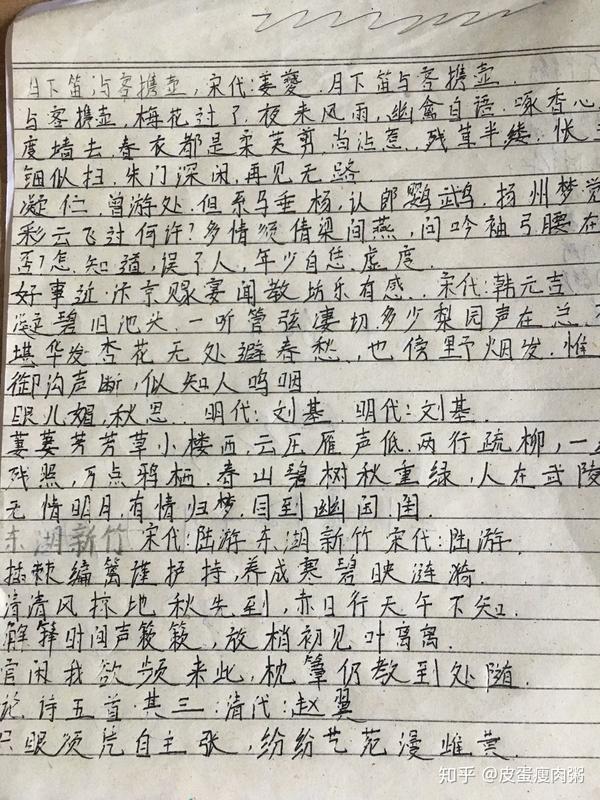 月下笛与客携壶,宋代:姜夔.月下笛与客携壶.
与客携壶,梅花过了,夜来风雨,幽禽自语.啄香心,
度墙去.春衣都是柔荑剪,尚沾惹.残茸半缕.怅
钿似扫.朱门深闭,再见无路
凝伫.曾游处.但系马垂杨,认郎鹦鹉.扬州梦觉
彩云飞过何许?多情须倩梁间燕,问吟袖弓腰在
否?怎.知道,误了人,年少自恁虚度.
好事近·汴京赐宴闻教坊乐有感.宋代:韩元吉
碧旧池头,一听管弦凄切.多少梨园声在总,不
堪华发.杏花无处避春愁,也傍野烟发,惟
御沟声断,似知人呜咽
眼儿媚,秋思.明代:刘基.明代:刘基.
萋萋芳芳草小楼西,云压雁声低.两行疏柳,一
残照,万点鸦栖.春山碧树秋重绿,人在武陵
无情明月,有情归梦,同到幽闺.闺.
东湖新竹 宋代:陆游 东湖新竹 宋代:陆游.
插棘编篱谨护持,养成寒碧映涟漪.
清清风掠地秋先到,赤日行天午下知.
解箨时闻声簌簌,放梢初见叶离离.
官闲我欲频来此,枕簟仍教到处随.
诗五首·其三:清代:赵翼
只眼须凭自主张,纷纷艺苑漫雌黄.
知乎 @皮蛋瘦肉粥